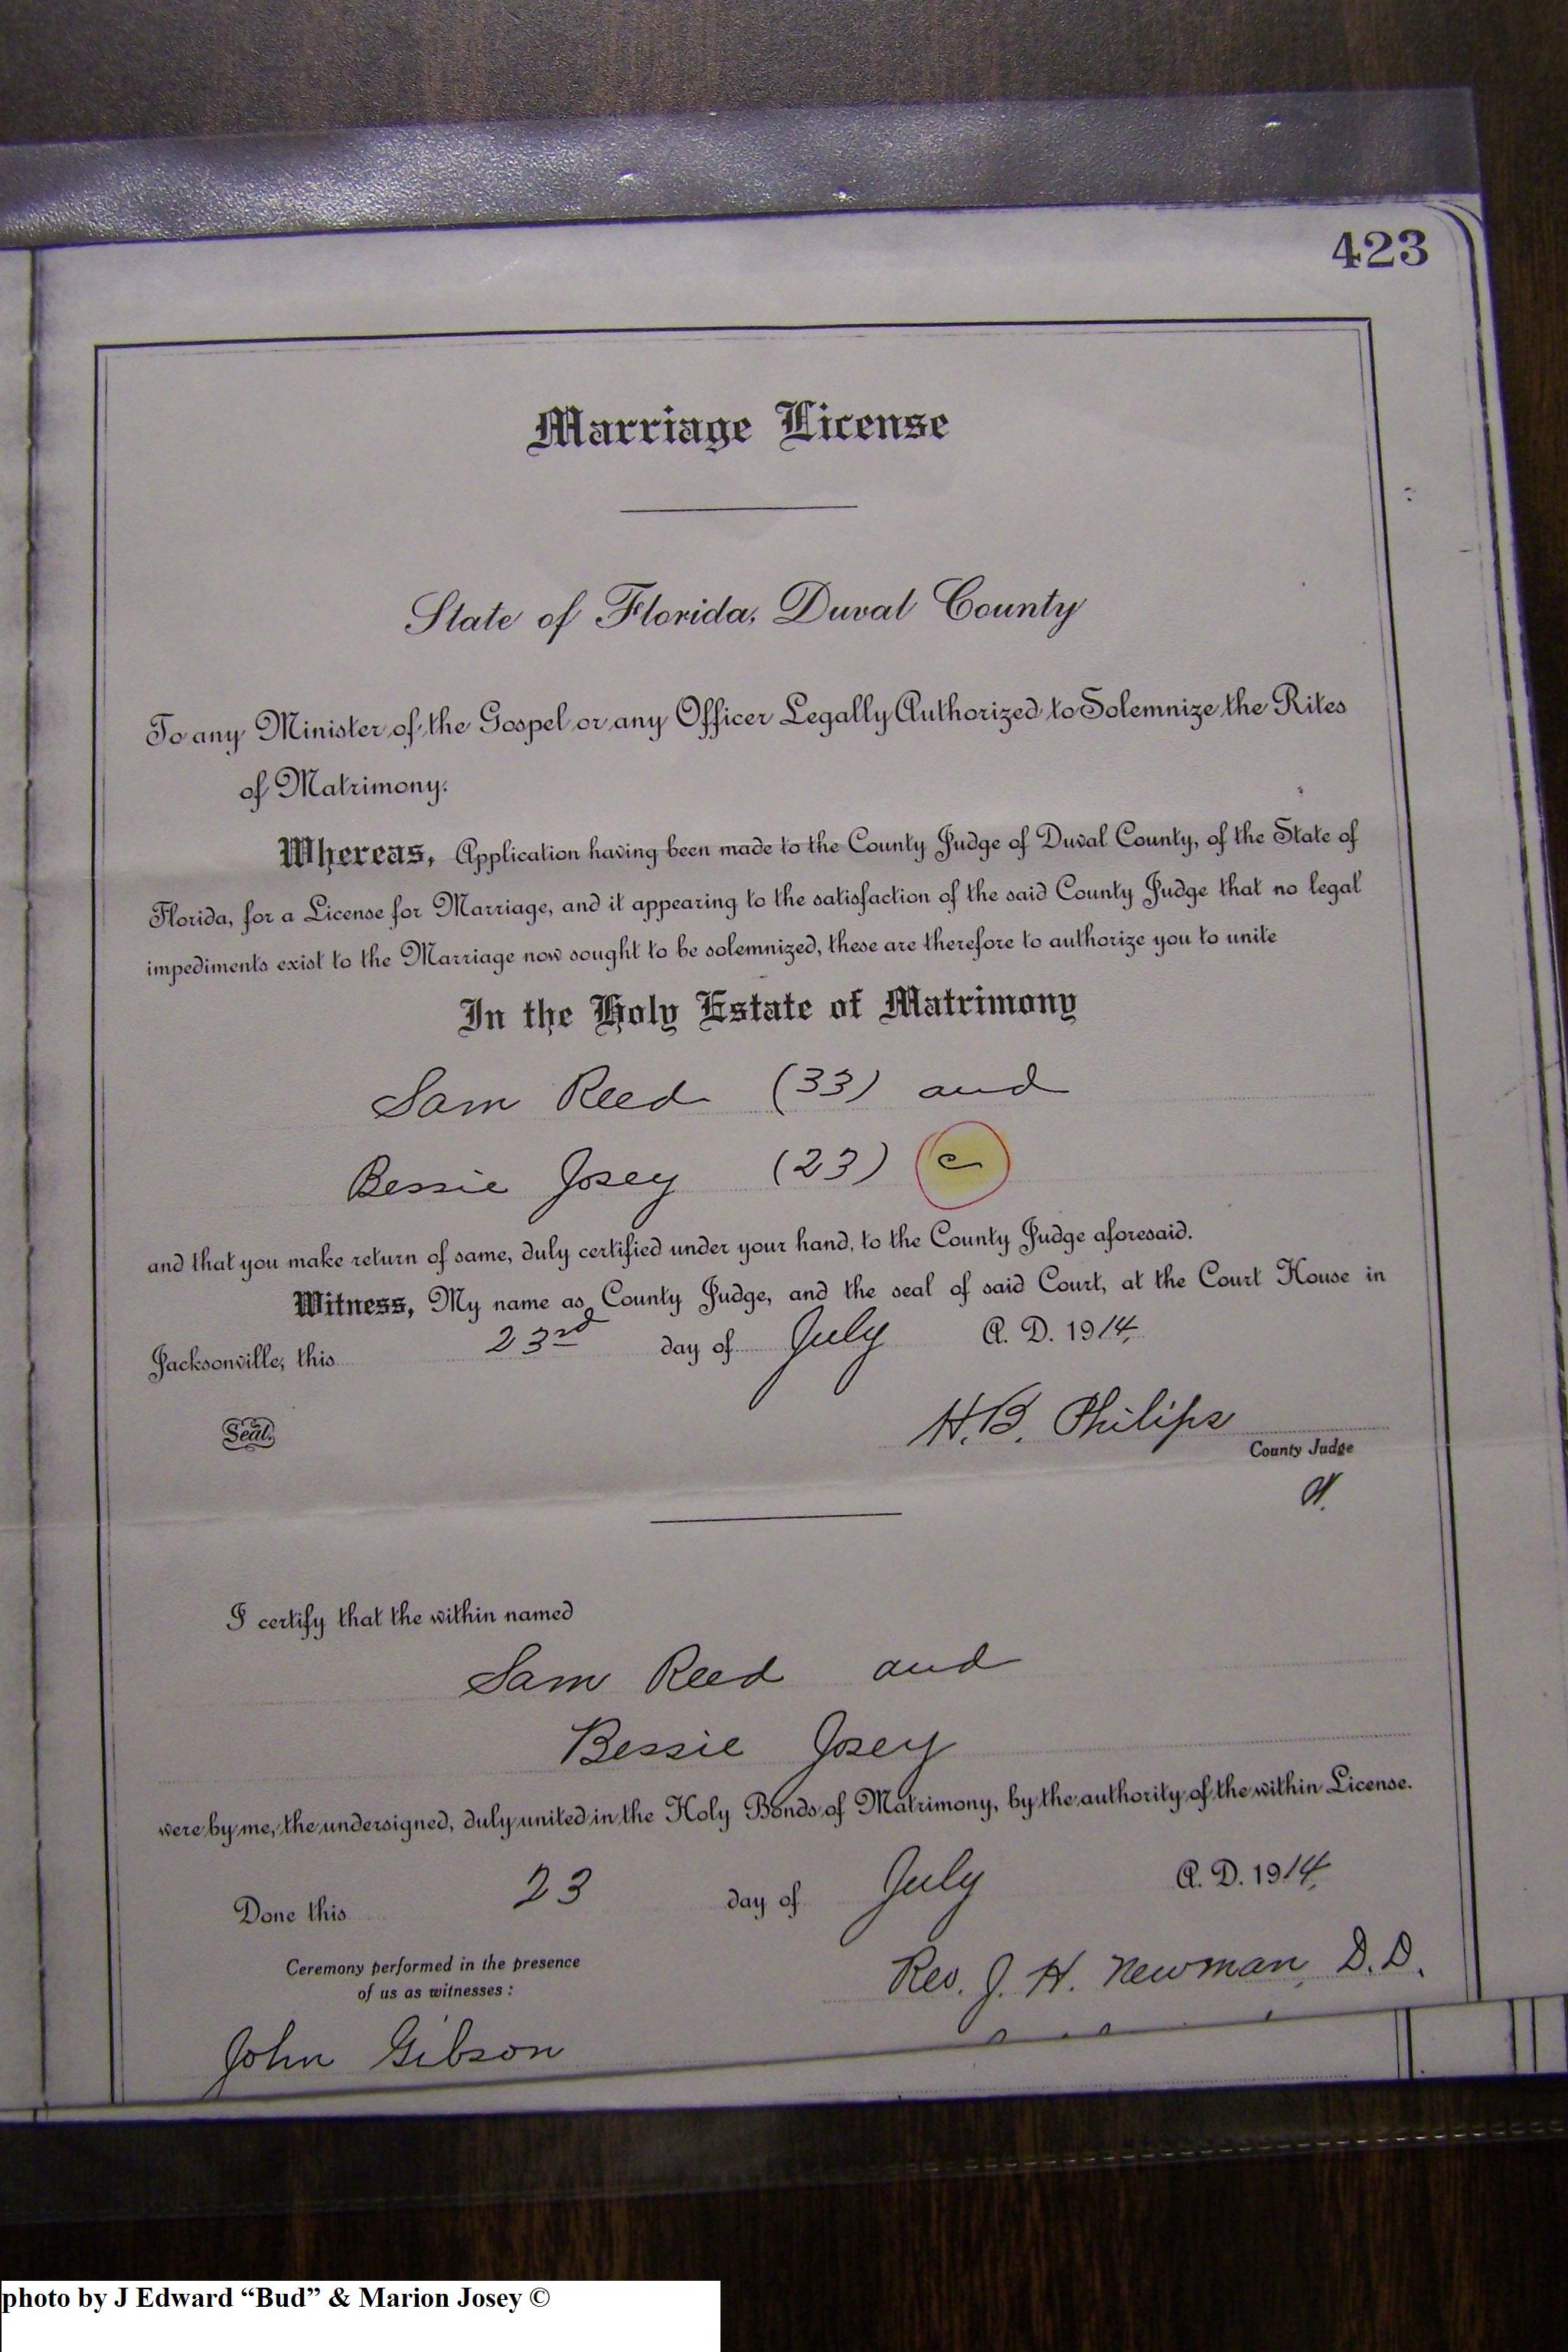 423
Marriage License
State of Florida, Duval County
To any Minister of the Gospel or any Officer Legally Authorized to Solemnize the Rites
of Matrimony:
Whereas, Application having been made to the County Judge of Duval County, of the State of
Florida, for a License for Marriage, and it appearing to the satisfaction of the said County Judge that no legal
impediments exist to the Marriage now sought to be solemnized, these are therefore to authorize you to unite
In the Holy Estate of Matrimony
Sam Reed (33) and
Bessie Josey (23) c
and that you make return of same, duly certified under your hand, to the County Judge aforesaid.
Witness, My name as County Judge, and the seal of said Court, at the Court House in
Jacksonville, this 23rd day of July A. D. 1914.
Seal.
H. B. Philips
County Judge
I certify that the within named
Sam Reed and
Bessie Josey
were by me, the undersigned, duly united in the Holy Bonds of Matrimony, by the authority of the within License.
Done this 23 day of July A. D. 1914.
Ceremony performed in the presence
of us as witnesses:
Rev. J. H. Newman, D.D.
John Gibson
photo by J Edward “Bud” & Marion Josey ©